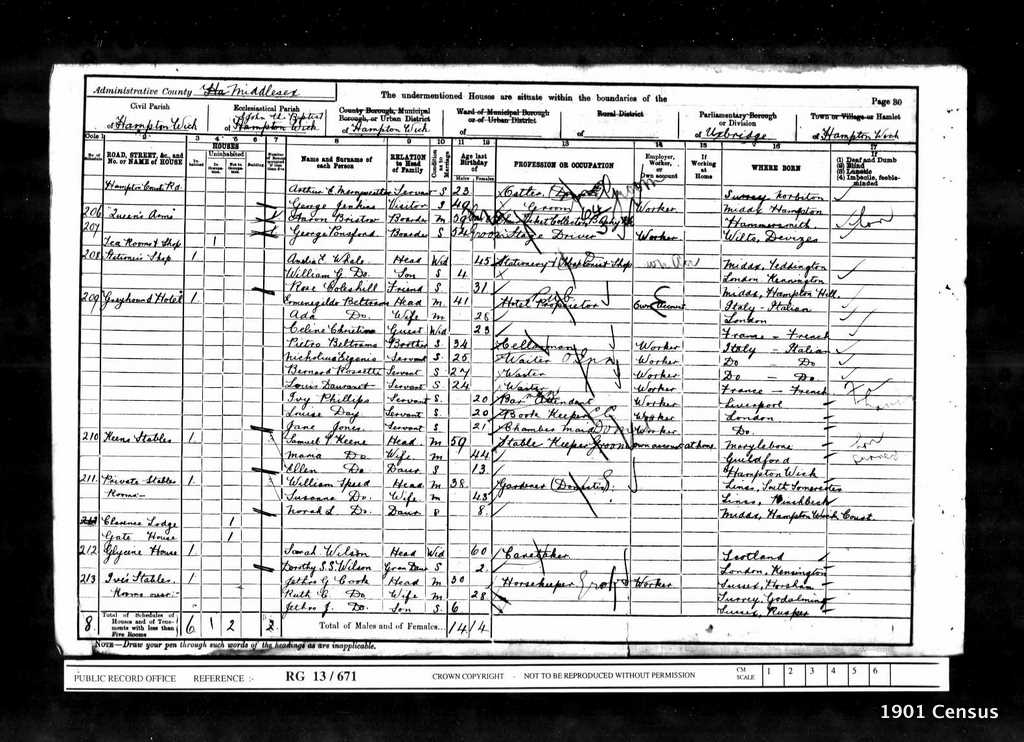 Administrative County Middlesex
The undermentioned Houses are situate within the boundaries of the
Page 30
Civil Parish
of Hampton Wick
Ecclesiastical Parish
of St John the Baptist
Hampton Wick
County Borough, Municipal Borough, or Urban District
of Hampton Wick
Ward of Municipal Borough or of Urban District
of
Rural District
of
Parliamentary Borough or Division
of Uxbridge
Town or Village or Hamlet
of Hampton Wick
ROAD, STREET, &c., and No. or NAME of HOUSE
HOUSES
Inhabited
Uninhabited
Building
Name and Surname of each Person
RELATION to Head of Family
Condition as to Marriage
Age last Birthday of
Males Females
PROFESSION OR OCCUPATION
Employer, Worker, or Own account
If Working at Home
WHERE BORN
If
(1) Deaf and Dumb
(2) Blind
(3) Lunatic
(4) Imbecile, feeble-minded
Hampton Court Rd. Servant S 23 Surrey
206 "Queen's Arms" George Jenkins Visitor S 49 Groom Worker Middx Hampton
Bristow Boarder M 59 Ticket Collector Hammersmith
207 George Ponsford Boarder S 54 Stage Driver Worker Wilts, Devizes
Tea Rooms & Shop 1
208 Stationer's Shop 1 Whale Head Wid 45 Stationery & Shop Middx, Teddington
William G. Do. Son S 4 London Kennington
Rose Coleshill Friend S 31 Middx, Hampton Hill
209 "Greyhound Hotel" 1 Beltrami Head M 41 Hotel Proprietor Own account Italy - Italian
Ada Do. Wife M 28 London
Celine Christina Guest Wid 23 France - French
Pietro Beltrami Brother S 34 Cellarman Worker Italy - Italian
Servant S 25 Waiter Worker Do - Do
Bernard Rossetti Servant S 27 Waiter Worker Do - Do
Louis Servant S 24 Waiter Worker France - French
Ivy Phillips Servant S 20 Bar Attendant Worker Liverpool
Louise Day Servant S 20 Book Keeper Worker London
Jane Jones Servant S 21 Chamber maid Worker Do.
210 Keens Stables 1 Samuel Keene Head M 59 Stable Keeper Groom own account at home Marylebone
Maria Do. Wife M 44 Guildford
Ellen Do. Daur S 13 Hampton Wick
211 Private Stables 1 William Speed Head M 38 Gardener (Domestic) Lincs,
Rooms - Susanna Do. Wife M 43 Lincs, Pinchbeck
Norah L. Do. Daur 8 Middx, Hampton Wick
Clarence Lodge 1
Gate House 1
212 Glycine House 1 Sarah Wilson Head Wid 60 Caretaker Scotland
Dorothy S. S. Wilson Gran Daur S 2 London, Kensington
213 Ive's Stables. 1 Jethro G. Cook Head M 30 Horsekeeper Groom Worker Sussex, Horsham
Rooms over Ruth G. Do. Wife M 28 Surrey, Godalming
Jethro J. Do. Son S 6 Sussex, Rusper
8 Total of Schedules of Houses and of Tenements with less than Five Rooms 6 1 2 2 Total of Males and of Females... 14 14
NOTE—Draw your pen through such words of the headings as are inapplicable.
PUBLIC RECORD OFFICE REFERENCE :- RG 13/671 CROWN COPYRIGHT - NOT TO BE REPRODUCED WITHOUT PERMISSION CM SCALE 1 2 3 4 5 6
1901 Census